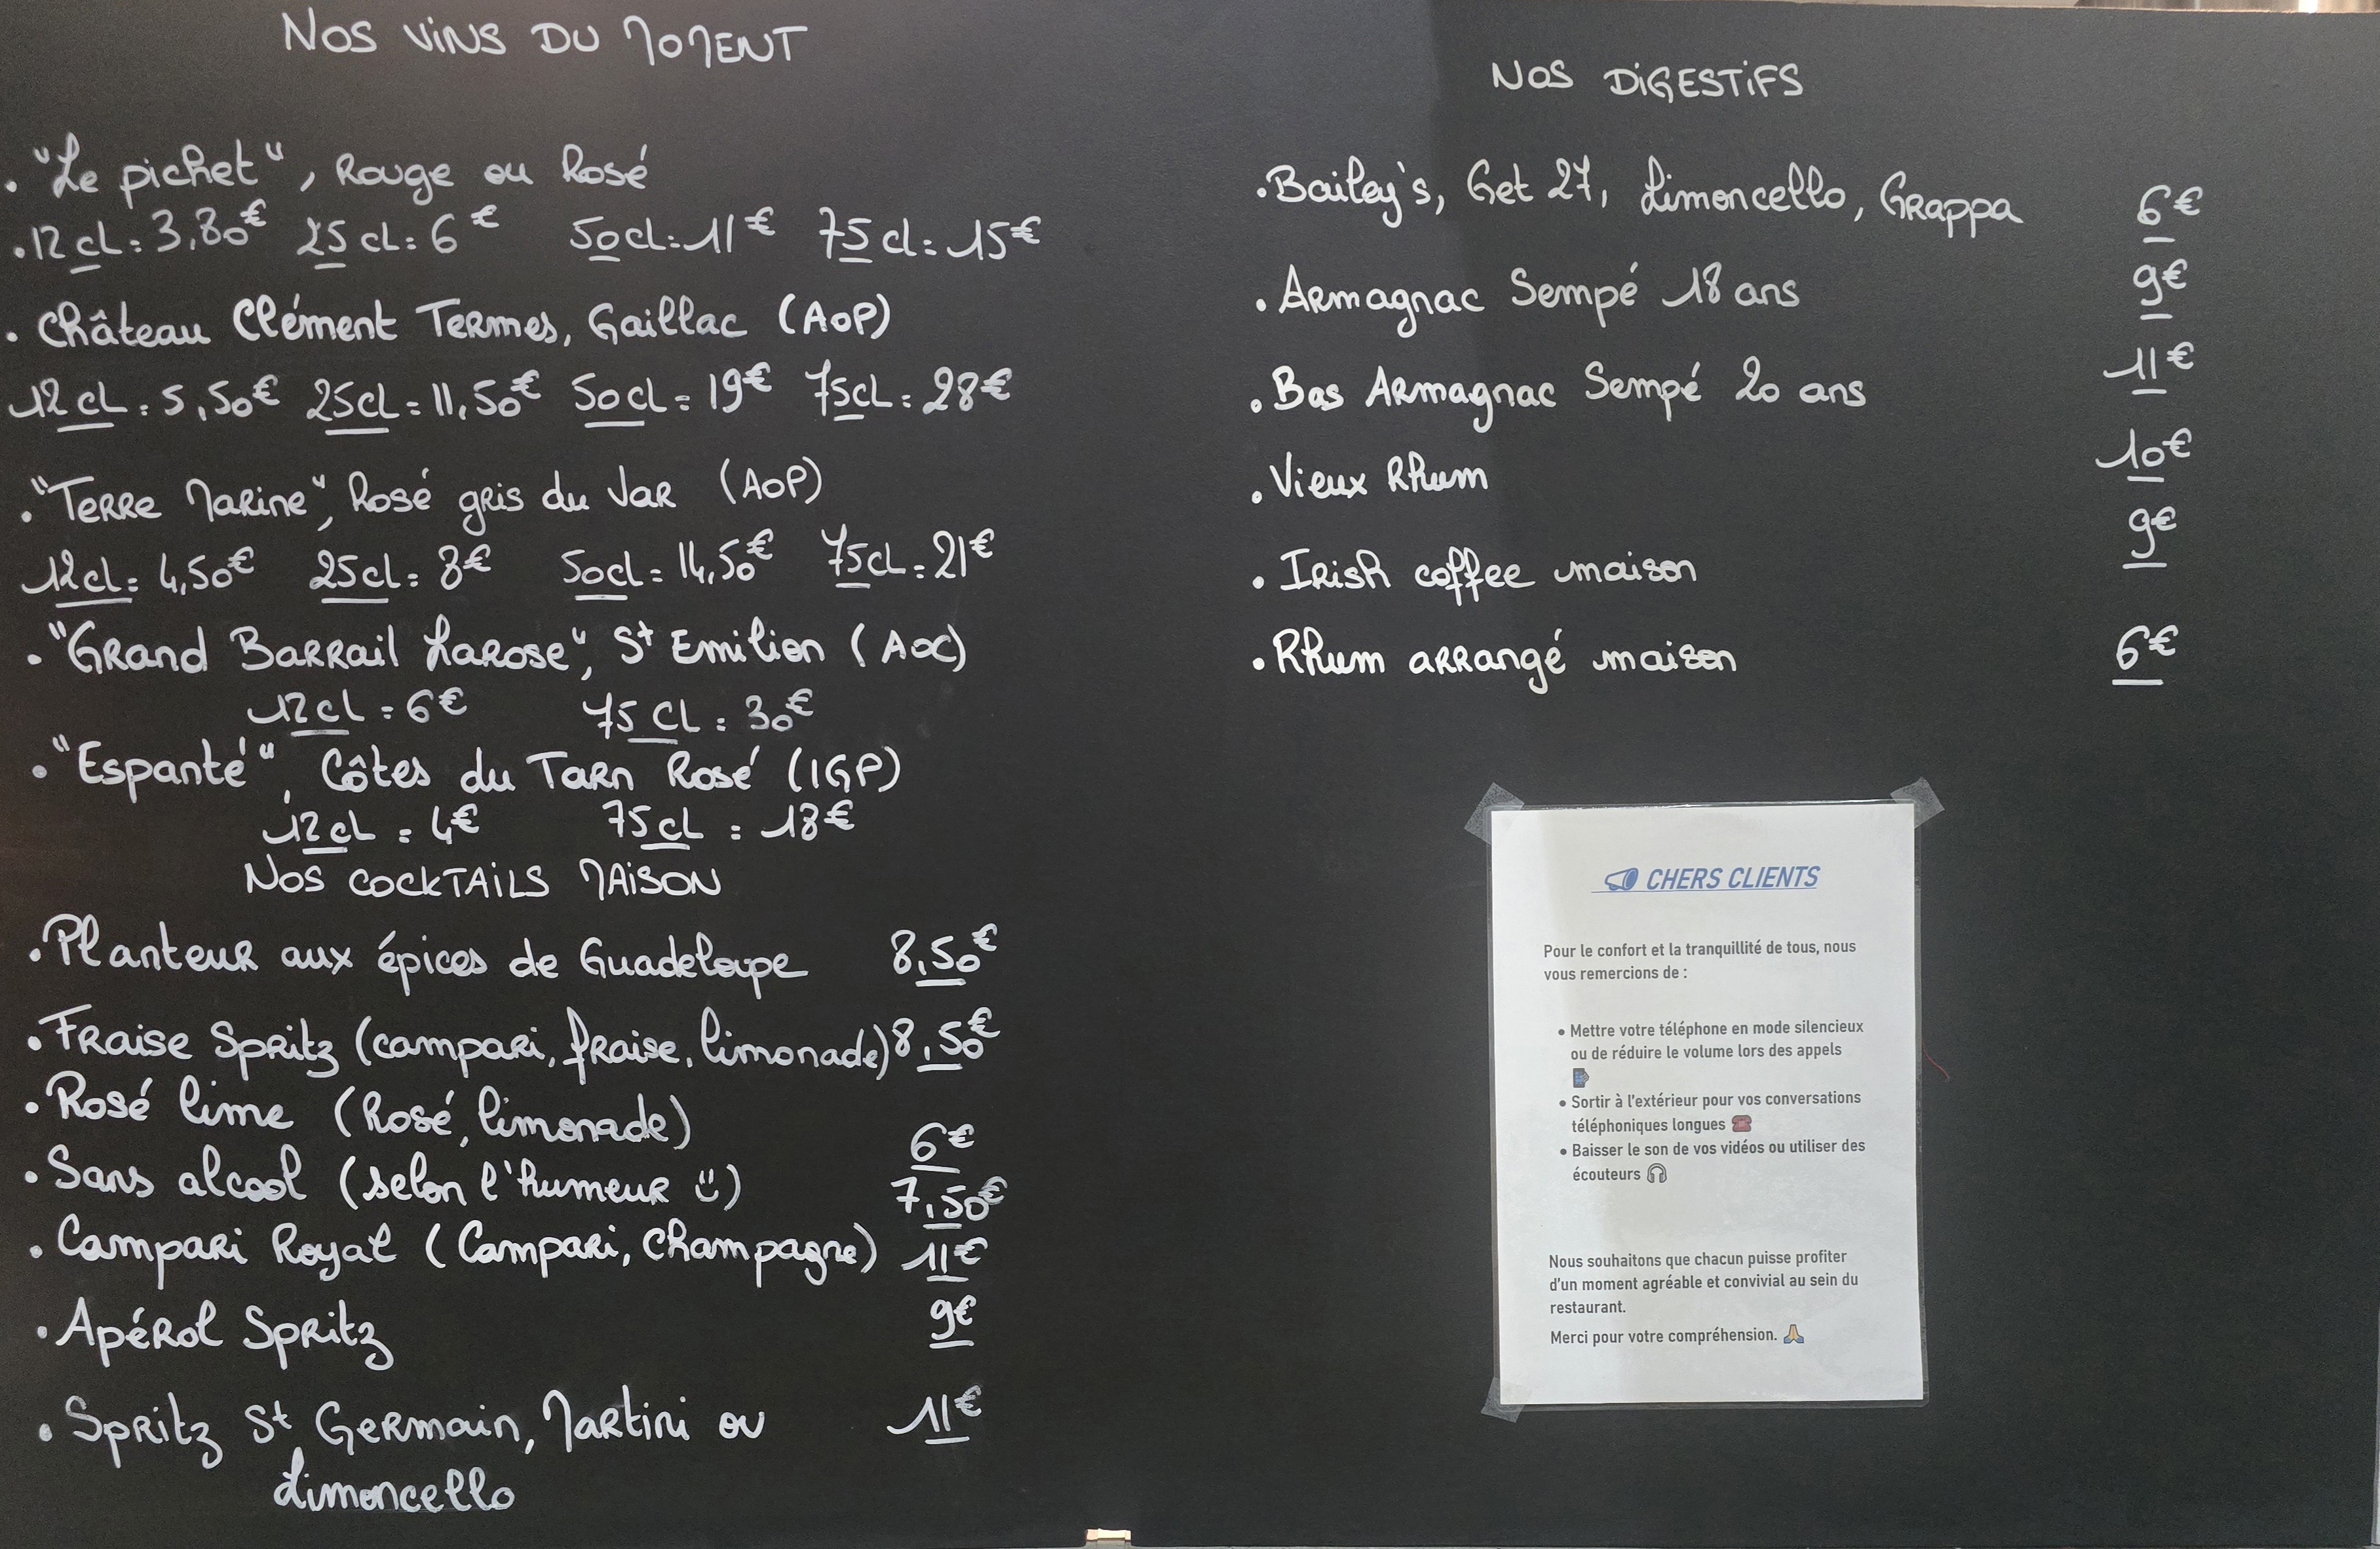 NOS VINS DU MOMENT
• "Le pichet", Rouge ou Rosé
• 12 cl = 3,80€ 25 cl = 6€ 50cl = 11€ 75 cl = 15€
• Château Clément Termes, Gaillac (AOP)
12 cl = 5,50€ 25cl = 11,50€ 50cl = 19€ 75cl = 28€
• "Terre Marine", Rosé gris du Var (AOP)
12cl = 4,50€ 25cl = 8€ 50cl = 14,50€ 75cl = 21€
• "Grand Barrail Larose", St Emilion (AOC)
12cl = 6€ 75 cl = 30€
• "Espanté", Côtes du Tarn Rosé (IGP)
12cl = 4€ 75cl = 18€
NOS COCKTAILS MAISON
• Planteur aux épices de Guadeloupe 8,50€
• Fraise Spritz (campari, fraise, limonade) 8,50€
• Rosé lime (Rosé, limonade) 6€
• Sans alcool (selon l'humeur ü) 7,50€
• Campari Royal (Campari, champagne) 11€
• Apérol Spritz 9€
• Spritz St Germain, Martini ou 11€
Limoncello
NOS DIGESTIFS
• Bailey's, Get 27, Limoncello, Grappa 6€
• Armagnac Sempé 18 ans 9€
• Bas Armagnac Sempé 20 ans 11€
• Vieux Rhum 10€
• Irish coffee maison 9€
• Rhum arrangé maison 6€
CHERS CLIENTS
Pour le confort et la tranquillité de tous, nous
vous remercions de :
• Mettre votre téléphone en mode silencieux
ou de réduire le volume lors des appels
• Sortir à l'extérieur pour vos conversations
téléphoniques longues ☎
• Baisser le son de vos vidéos ou utiliser des
écouteurs 🎧
Nous souhaitons que chacun puisse profiter
d'un moment agréable et convivial au sein du
restaurant.
Merci pour votre compréhension. 🙏